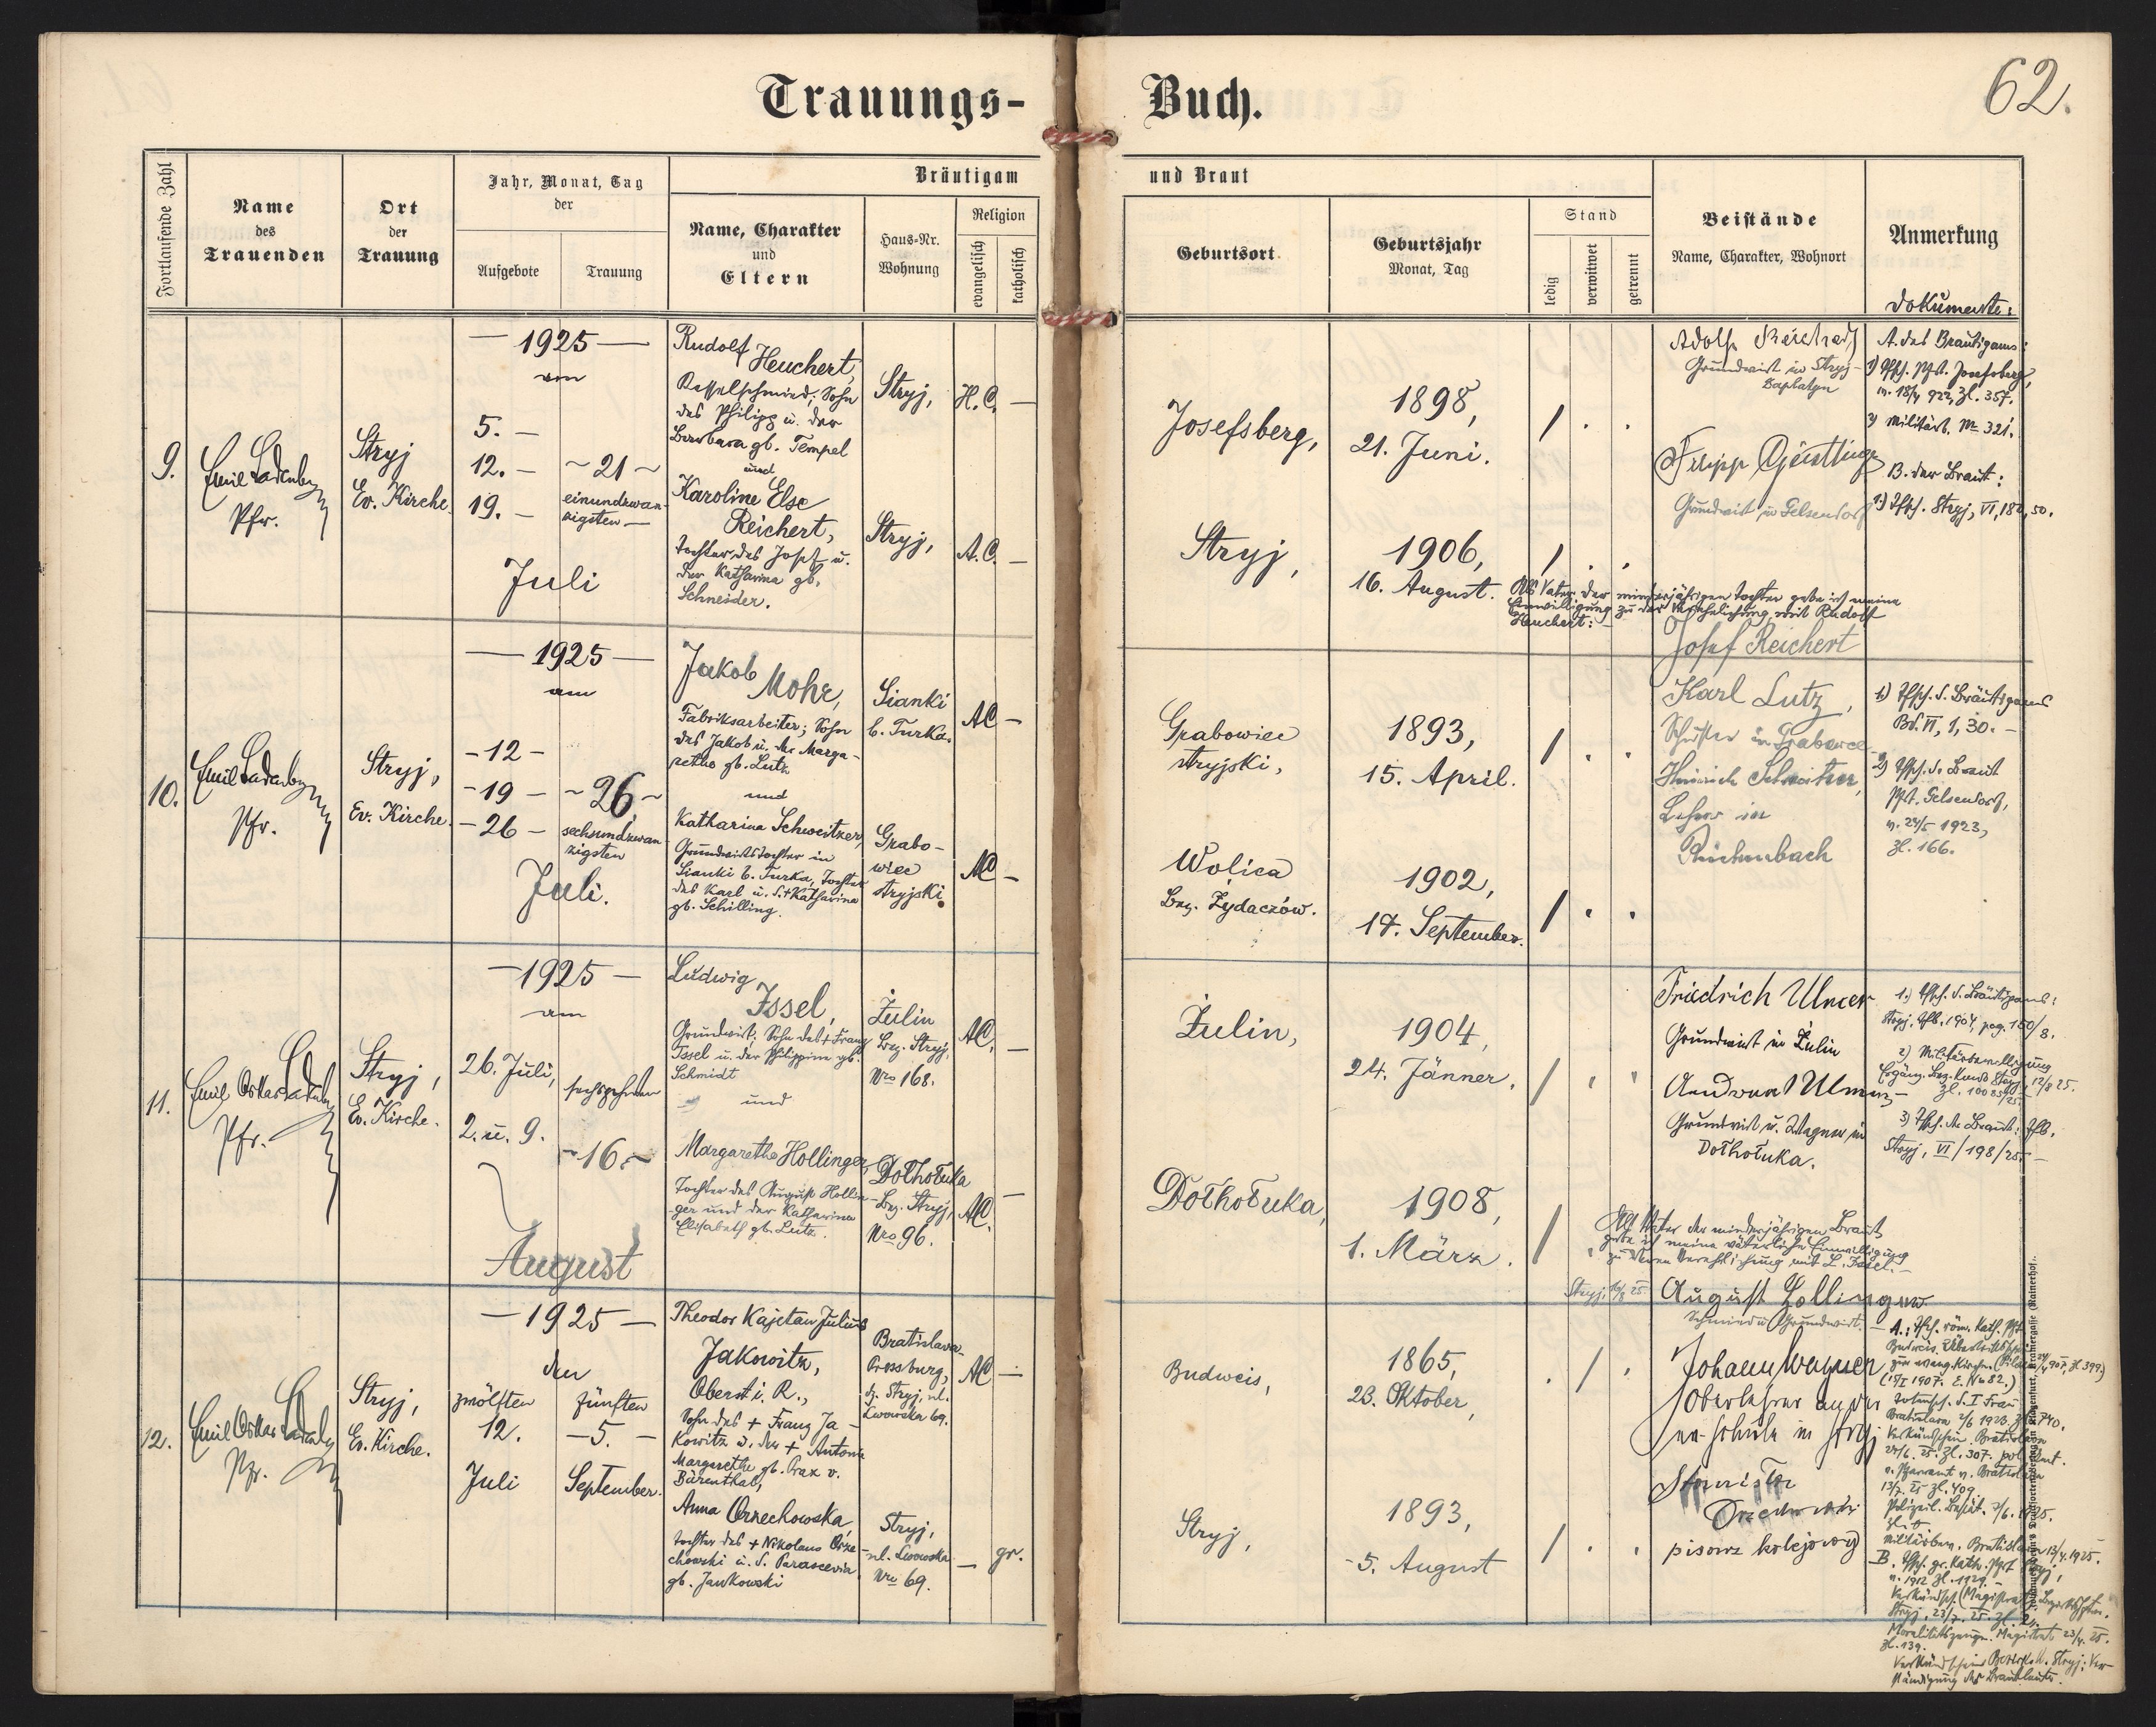 Trauungs-
Buch.
62.
Fortlaufende Zahl
Name
des
Trauenden
Ort
der
Trauung
Jahr, Monat, Tag
der
Aufgebote
Trauung
Bräutigam
Name, Charakter
und
Eltern
Haus-Nr.
Wohnung
Religion
evangelisch
katholisch
und Braut
Geburtsort
Geburtsjahr
Monat, Tag
Stand
ledig
verwitwet
getrennt
Beistände
Name, Charakter, Wohnort
Anmerkung
Dokumente:
9.
Emil Ladenberger
Pfr.
Stryj
Ev. Kirche.
— 1925 —
am
5. —
12. —
19. —
~ 21 ~
einundzwan-
zigsten —
Juli
Rudolf
Heuchert,
Kesselschmied; Sohn
des Philipp u. der
Barbara gb. Tempel
und
Karoline Else
Reichert,
Tochter des Josef u.
der Katharina gb.
Schneider.
Stryj,
H.C. —
Stryj,
A.C. —
Josefsberg,
1898,
21. Juni.
Stryj,
1906,
16. August.
Adolf
Grundwirt in Stryj-
Filipp
Grundwirt in Gelsendorf
A. des Bräutigams:
1) Tfsch. Pft. Josefsberg,
v. 18/4 922, Zl. 357.
2) Militärb. No 321.
B. der Braut:
1.) Tfsch. Stryj, VI, 180, 50.
Als Vater der minderjährigen Tochter gebe ich meine
Einwilligung zu der Verehelichung mit Rudolf
Heuchert: —
Josef Reichert
10.
Emil Ladenberger
Pfr.
Stryj,
Ev. Kirche.
— 1925 —
am
- 12 -
- 19 -
- 26 -
~ 26, ~
sechsundzwan-
zigsten
Juli.
Jakob
Mohr,
Fabriksarbeiter; Sohn
des Jakob u. der Marga-
retha gb. Lutz
und
Katharina Schweitzer,
Grundwirtstochter in
Sianki b. Turka, Tochter
des Karl u. d. + Katharina
gb. Schilling.
Sianki
b. Turka.
AC —
Grabo-
wiec
stryjski.
AC —
Grabowiec
stryjski,
1893,
15. April.
Wolica
Bez. Żydaczów.
1902,
17. September.
Karl Lutz,
Schuster in Grabowce
Heinrich Schweitzer,
Lehrer in
1.) Tfsch. d. Bräutigams
Bd. VI, 1, 30. —
2) Tfsch. d. Braut
Pft. Gelsendorf,
v. 24/5 1923,
Zl. 166.
11.
Emil Oskar Ladenberger
Pfr.
Stryj,
Ev. Kirche.
— 1925 —
am
26. Juli,
2. u. 9.
sechzehnten
- 16. ~
August
Ludwig
Issel,
Grundwirt, Sohn des + Franz
Issel u. der Philippine gb.
Schmidt
und
Margarethe Hollinger,
Tochter des August Hollin-
ger und der Katharina
Elisabeth gb. Lutz.
Żulin
Bez. Stryj,
Nro 168.
AC, —
Dołhołuka
Bez. Stryj,
Nro 96.
AC. —
Żulin,
1904,
24. Jänner.
Dołhołuka,
1908,
1. März.
Friedrich Ulmer
Grundwirt in Żulin
Grundwirt u. Wagner in
Dołhołuka.
1.) Tfsch. d. Bräutigams:
Stryj, Tfb. 1904, pag. 150/8.
2) Militärbewilligung
Ergänz. Bez. Kmdo Stryj v. 12/8 25.
Zl. 10085/25.
3) Tfsch. der Braut: Tfb.
Stryj, VI/198/25. —
Als Vater der minderjährigen Braut
gebe ich meine väterliche Einwilligung
zu deren Verehelichung mit L. Issel. —
Stryj, 16/8 25.
August Hollinger
Schmied u. Grundwirt. —
12.
Emil Oskar Ladenberger
Pfr.
Stryj,
Ev. Kirche.
— 1925 —
den
zwölften
12.
Juli
fünften
— 5. —
September.
Theodor Kajetan Julius
Jakowitz,
Oberst i. R.,
Sohn des + Franz Ja-
kowitz u. der + Antonie
Margarethe gb. Prax v.
Bärenthal,
Anna Orzechowska,
Tochter des + Nikolaus Orze-
chowski u. d. Parascevia
gb. Jankowski
Bratislava-
Pressburg,
dz. Stryj, ul.
Lwowska 69.
AC —
Stryj,
ul. Lwowska
Nro 69.
— gr.
Budweis,
1865,
23. Oktober,
Stryj,
1893,
- 5. August
Johann Wagner
Oberlehrer an der
ev. Schule in Stryj
pisarz kolejowy
A.: Tfsch. röm. Kath. Pft
Budweis.
zur evang. Kirche.
(15/I 1907. E. No 82.)
Totensch. d. I Frau
Bratislava 2/6 1923, Zl. 740.
Verkündschein, Bratislava
Militärbew. Bratislava 13/4. 1925.
B. Tfsch. gr. Kath. Pft Stryj,
v. 1912 Zl. 1929. —
Stryj, 23/7. 25. Zl.
Moralitätszeugn. Magistrat 23/4. 25.
Zl. 139.
Verkündschein Bezirksh. Stryj; Ver-
ständigung der Brautleute.